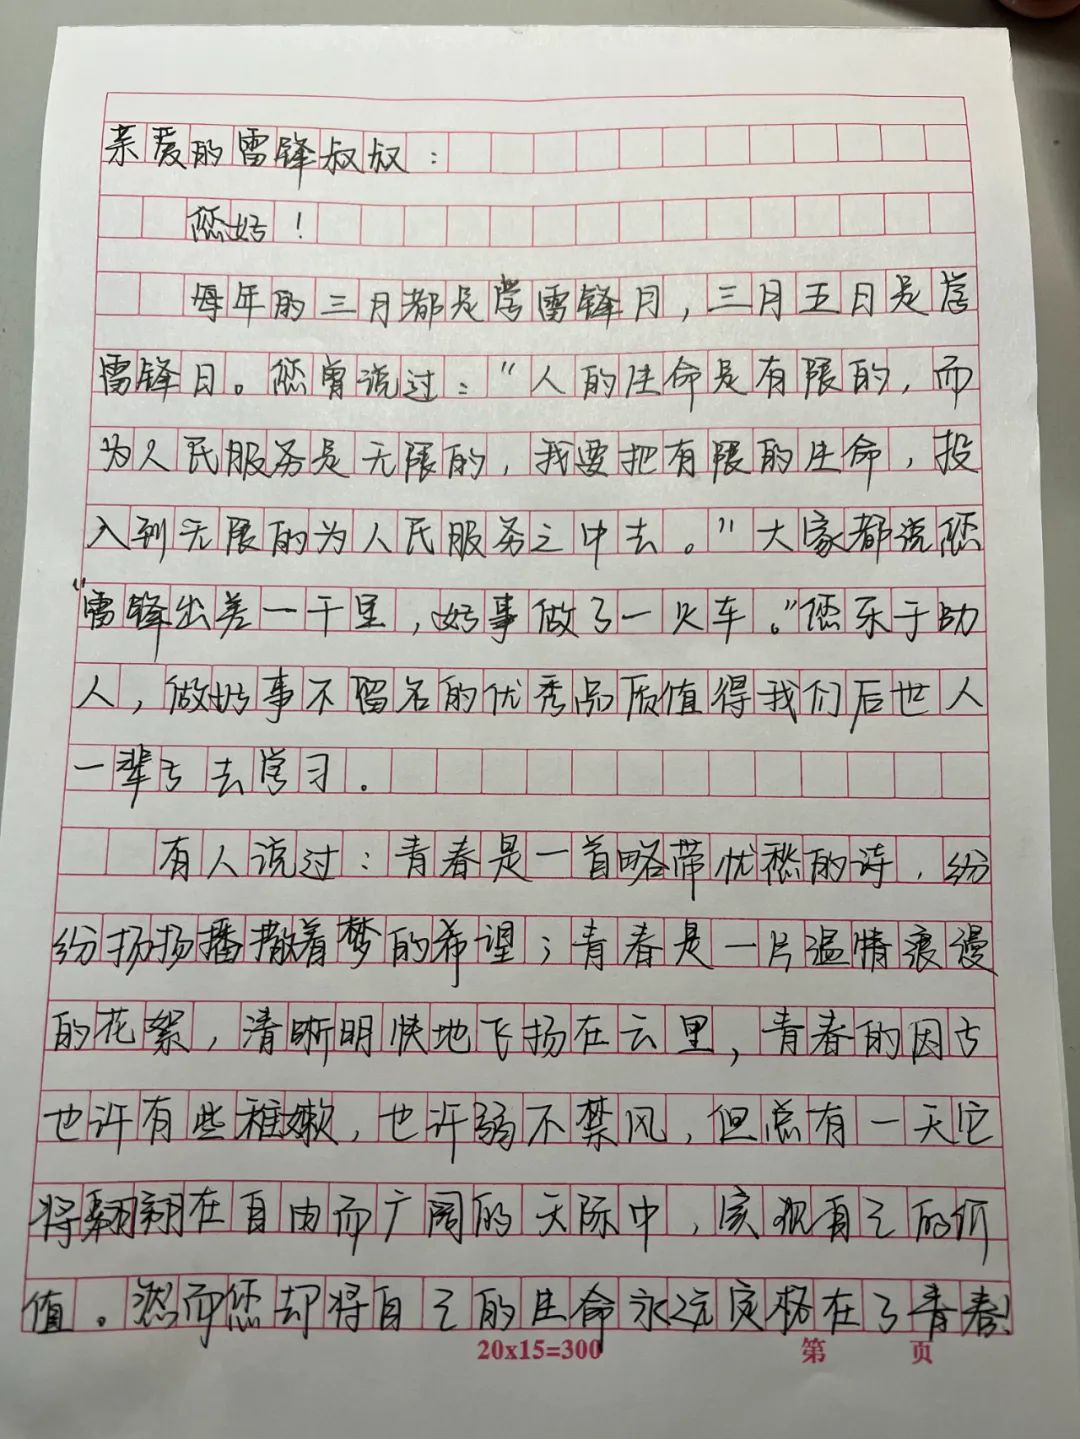 亲爱的雷锋叔叔：
您好！
每年的三月都是学雷锋月，三月五日是学
雷锋日。您曾说过：“人的生命是有限的，而
为人民服务是无限的，我要把有限的生命，投
入到无限的为人民服务之中去。”大家都说您
“雷锋出差一千里，好事做了一火车。”您乐于助
人，做好事不留名的优秀品质值得我们后世人
一辈子去学习．
有人说过：青春是一首略带忧愁的诗，纷
纷扬扬播撒着梦的希望；青春是一片温情浪漫
的花絮，清晰明快地飞扬在云里，青春的因子
也许有些稚嫩，也许弱不禁风，但总有一天它
将翱翔在自由而广阔的天际中，实现自己的价
值。然而您却将自己的生命永远定格在了青春！
20x15=300
第 页